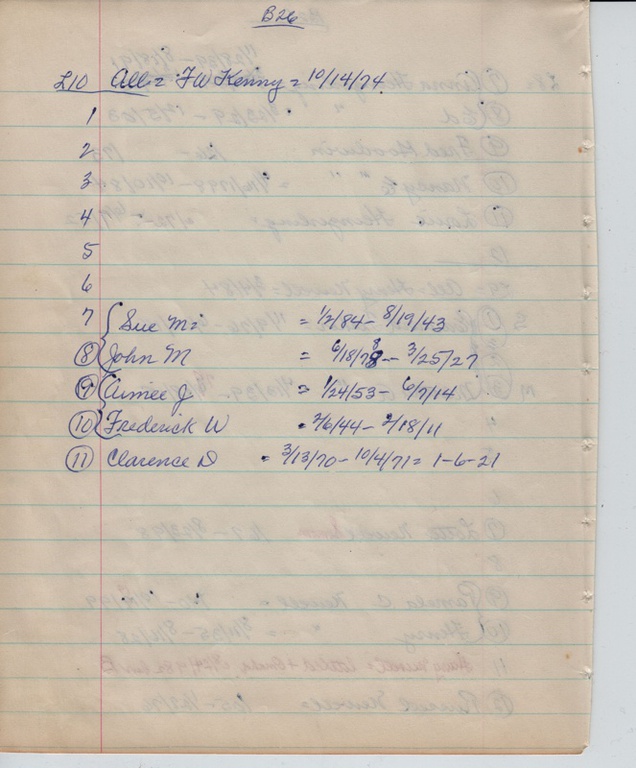 B26
L10 All = FW Kenny = 10/14/74
1
2
3
4
5
6
7 Sue Mc = 1/2/84 - 8/19/43
8 John M = 6/18/78 - 3/25/27
9 Aimée J = 1/24/53 - 6/7/14
10 Frederick W = 2/6/44 - 2/18/11
11 Clarence D = 3/13/70 - 10/4/71 = 1-6-21